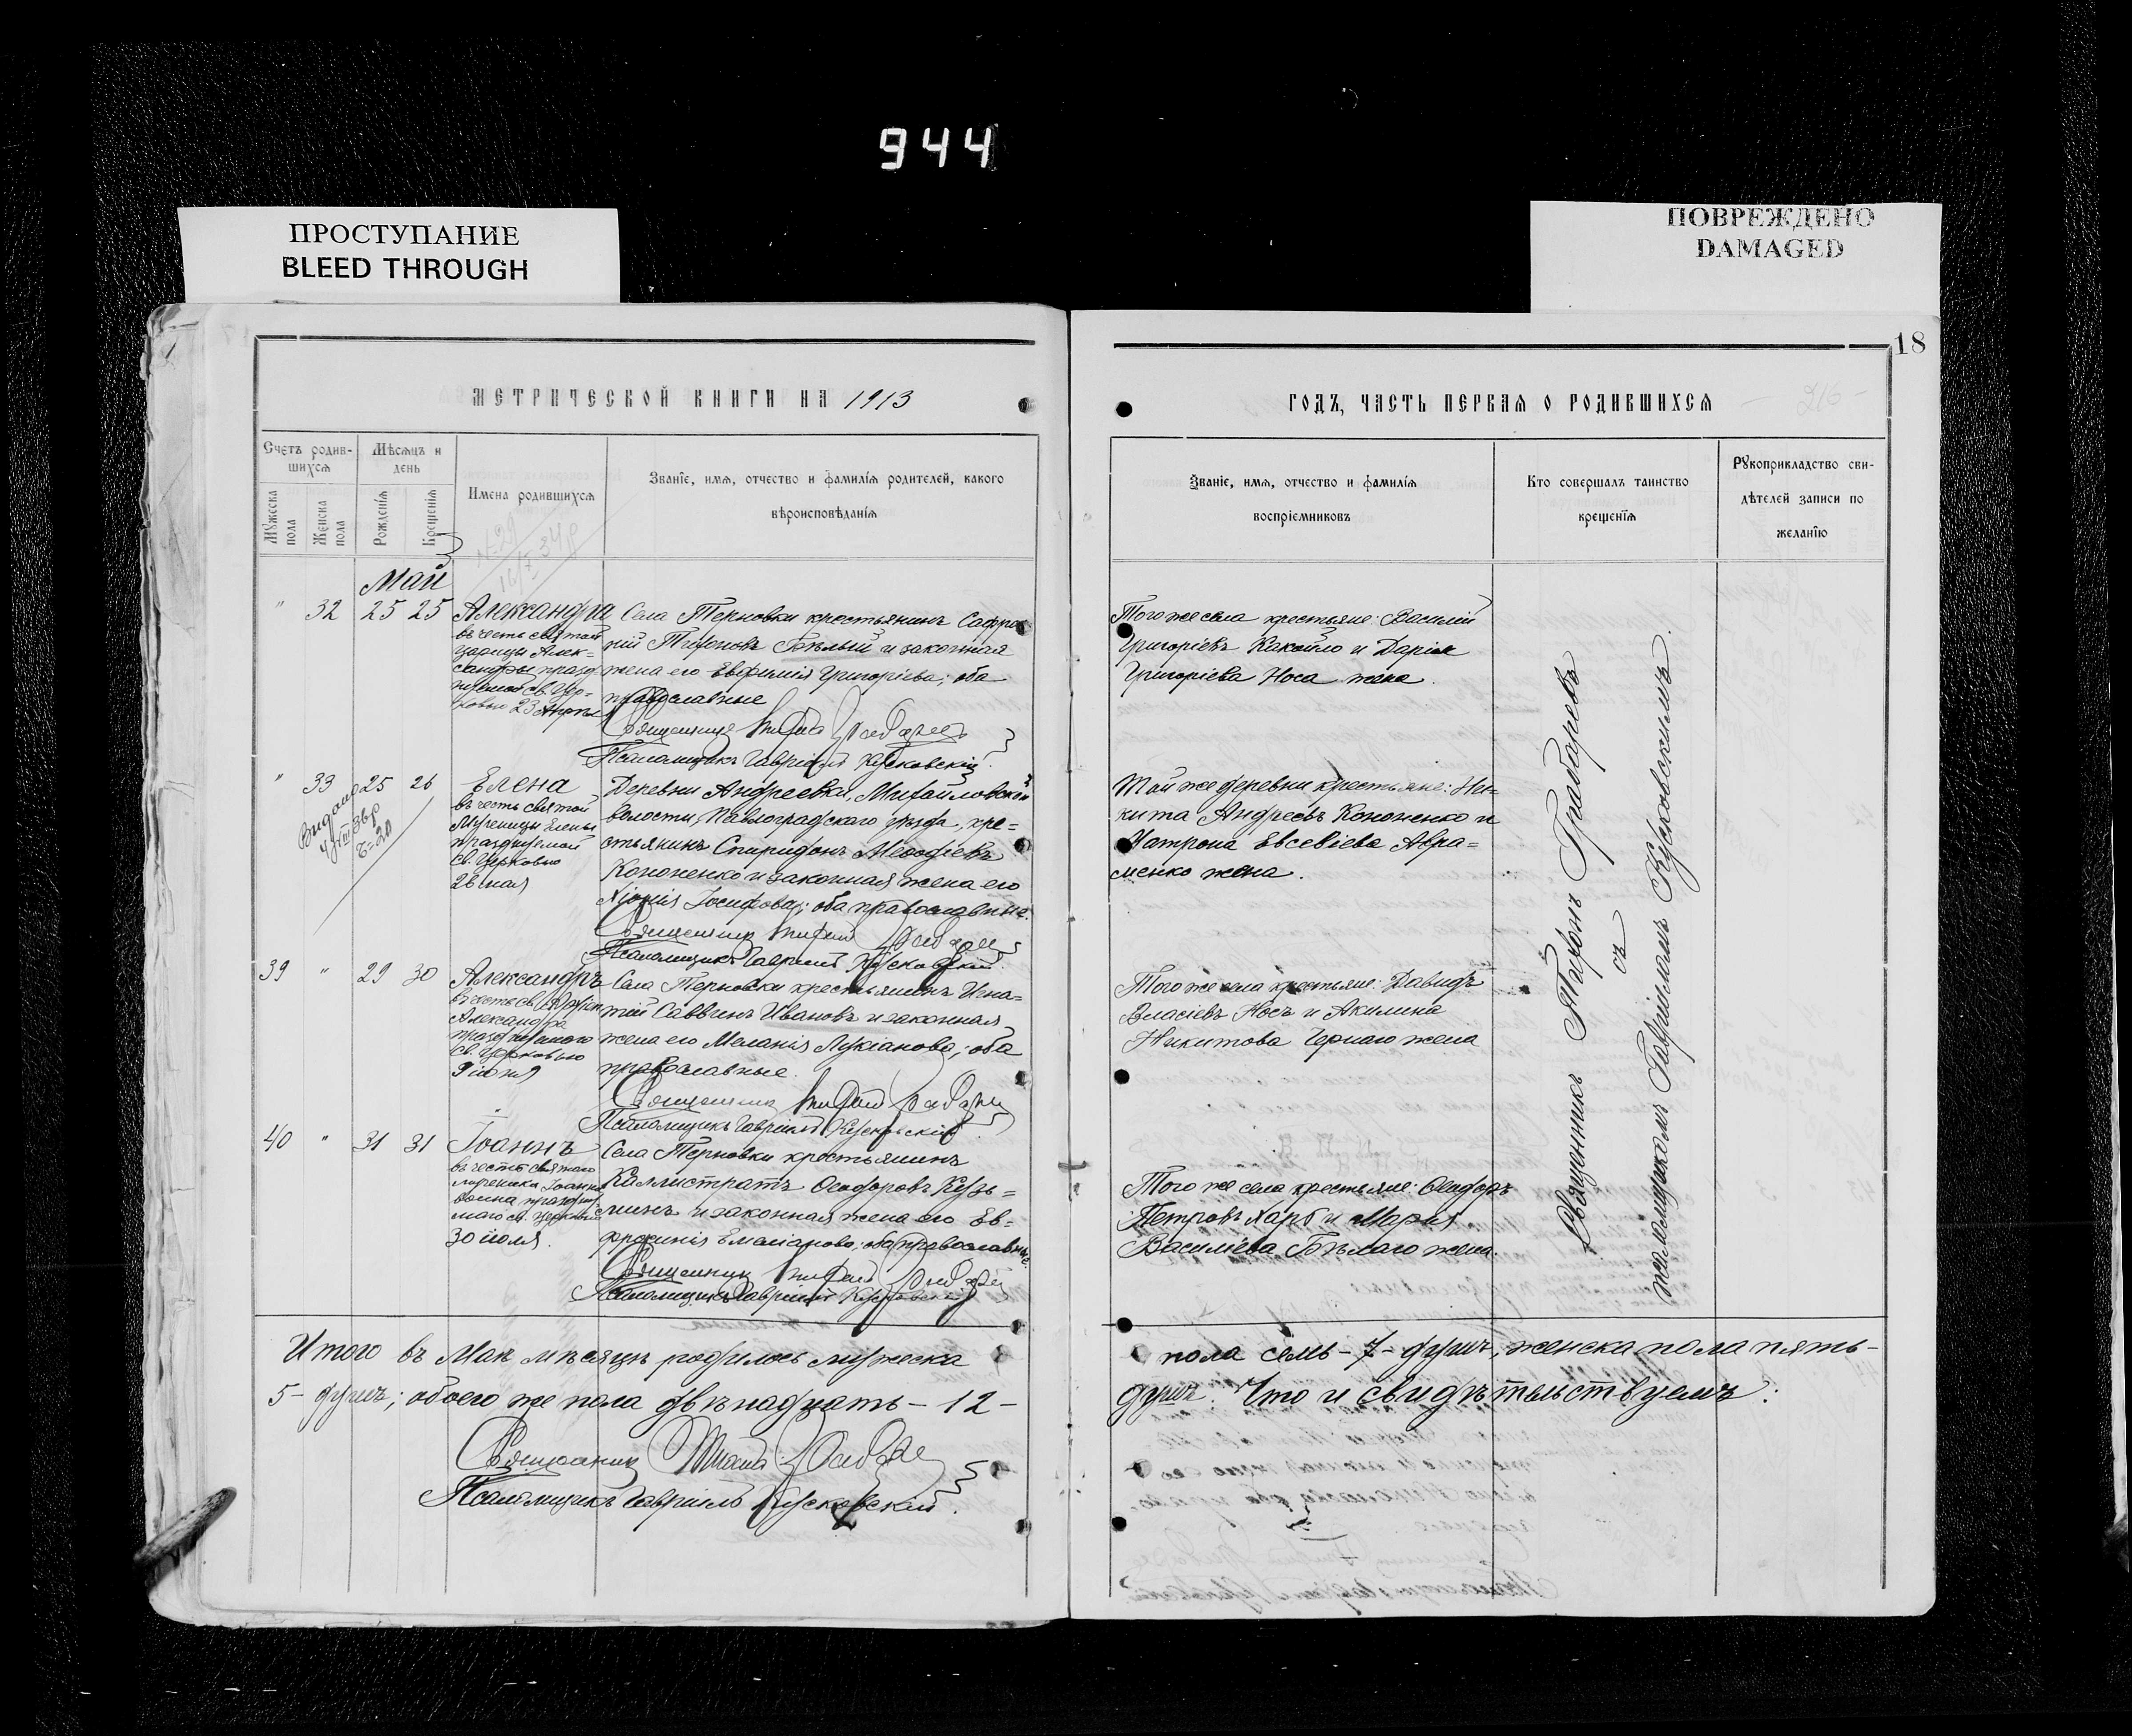 944
ПРОСТУПАНИЕ
BLEED THROUGH
ПОВРЕЖДЕНО
DAMAGED
18
МЕТРИЧЕСКОЙ КНИГИ НА 1913
ГОДЪ, ЧАСТЬ ПЕРВАЯ О РОДИВШИХСЯ
Счетъ родив-
шихся
Мѣсяцъ и
день
Мужеска
пола
Женска
пола
Рожденія
Крещенія
Имена родившихся
Званіе, имя, отчество и фамилія родителей, какого
вѣроисповѣданія
Званіе, имя, отчество и фамилія
воспріемниковъ
Кто совершалъ таинство
крещенія
Рукоприкладство сви-
дѣтелей записи по
желанію
Май
" 32 25 25
Александра
въ честь святой
царицы Алек-
сандры празд
св. Цер-
ковью 23 Апрѣля
Села Терновки крестьянинъ Софро
ній Тифоновъ Бѣлый и законная
жена его Евфимія Григорьева; оба
православные
Священникъ
Псаломщикъ Гавріилъ Кусковскій.
Того же села крестьяне: Василій
Григоріевъ Какойло и Дарія
Григоріева Носа жена.
" 33 25 26
Видано
Елена
въ честь святой
Мученицы Елены
празднуемой
Св. Церковью
26 мая
Деревни Андреевки, Михайловской
волости, Павлоградскаго уѣзда, кре=
стьянинъ Спиридонъ Меѳодіевъ
Кононенко и законная жена его
Іосифова; оба православные.
Священникъ
Псаломщикъ Гавріилъ Кусковскій.
Той же деревни крестьяне: Ни-
кита Андреевъ Кононенко и
Матрона Евсевіева Авра=
менко жена.
39 " 29 30
Александръ
въ честь св.
Александра
празднуемаго
Св. Церковью
9 іюня
Села Терновки крестьянинъ Игна=
тій Саввинъ Ивановъ и законная
жена его Меланія Лукіанова; оба
православные.
Священникъ
Псаломщикъ Гавріилъ Кусковскій.
Того же села крестьяне: Давидъ
Власіевъ Носъ и Акилина
Никитова Чернаго жена
40 " 31 31
Іоаннъ
въ честь святаго
Іоанна
воина празднуе
маго св. Церковію
30 іюля.
Села Терновки крестьянинъ
Каллистратъ Ѳеодоровъ Кузь=
минъ и законная жена его Ев=
фросинія Емеліанова; оба православные.
Священникъ
Псаломщикъ Гавріилъ Кусковскій
Того же села крестьяне: Ѳеодоръ
Петровъ и Марія
Василіева Бѣлаго жена.
Священникъ Тифонъ Грабаревъ
съ
псаломщикомъ Гавріиломъ Кусковскимъ.
Итого въ Маѣ мѣсяцѣ родилось мужеска
пола семь - 7 - душъ, женска пола пять -
5 - душъ; обоего же пола двѣнадцать - 12 -
душъ. Что и свидѣтельствуемъ:
Священникъ
Псаломщикъ Гавріилъ Кусковскій.